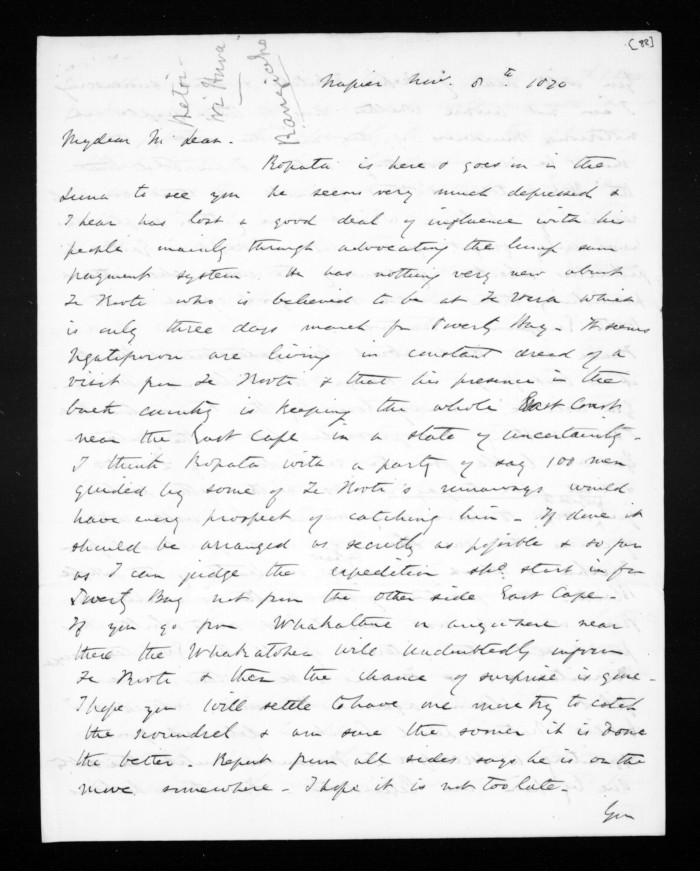 [92]
Hetoi
Napier Nov. 8th 1870
My dear McLean.
Ropata is here & goes in in the
Luna to see you he seems very much depressed &
I hear has lost a good deal of influence with his
people mainly through advocating the lump sum
payment system. He has nothing very new about
Te Kooti who is believed to be at Te Wera which
is only three days march fm Poverty Bay - It seems
Ngatiporou are living in constant dread of a
visit from Te Kooti & that his presence in the
back country is keeping the whole East Coast
near the East Cape in a state of uncertainty -
I think Ropata with a party of say 100 men
guided by some of Te Kooti's runaways would
have every prospect of catching him - If done it
should be arranged as secretly as possible & so far
as I can judge the expedition shd. start in fm
Poverty Bay not from the other side East Cape -
If you go from Whakatane or anywhere near
there the Whakatohea will undoubtedly inform
Te Kooti & then the chance of surprise is gone -
I hope you will settle to have one more try to catch
the scoundrel & am sure the sooner it is done
the better. Report from all sides says he is on the
move somewhere - I hope it is not too late -
You